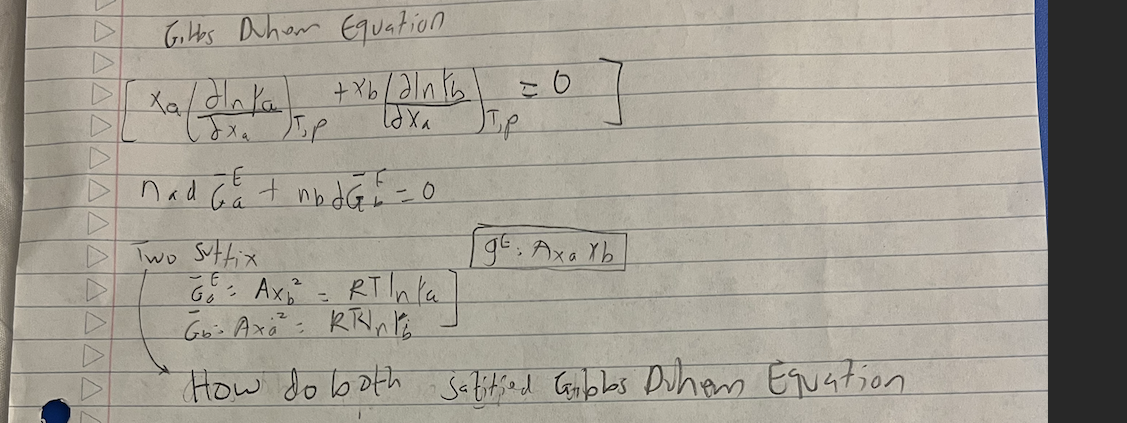 Gibbs Duhem Equation
[ xa (∂ln γa / ∂xa)T,P + xb (∂ln γb / ∂xa)T,P = 0 ]
nad G̅aᴱ + nb dG̅bᴱ = 0
Two suffix
gᴱ: Axa xb
G̅aᴱ = Axb² = RT ln γa
G̅b = Axa² = RT ln γb
How do both satitfied Gibbs Duhem Equation